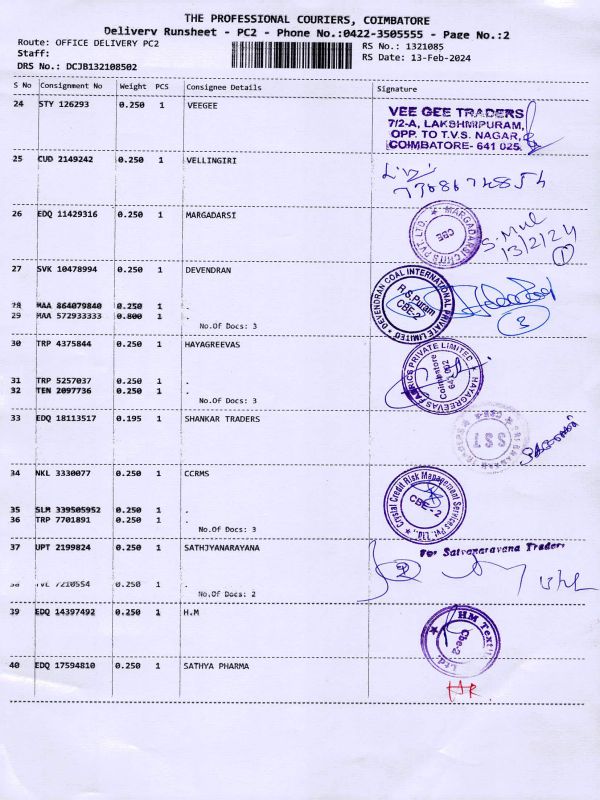 THE PROFESSIONAL COURIERS, COIMBATORE
Delivery Runsheet - PC2 - Phone No.:0422-3505555 - Page No.:2
Route: OFFICE DELIVERY PC2
RS No.: 1321085
Staff:
RS Date: 13-Feb-2024
DRS No.: DCJB132108502
S No Consignment No Weight PCS Consignee Details Signature
24 STY 126293 0.250 1 VEEGEE
VEE GEE TRADERS
7/2-A, LAKSHMIPURAM,
OPP. TO T.V.S. NAGAR,
COIMBATORE- 641 025.
25 CUD 2149242 0.250 1 VELLINGIRI
26 EDQ 11429316 0.250 1 MARGADARSI
MARGADARSI CHITS PVT. LTD.
CBE
13/2/24
1
27 SVK 10478994 0.250 1 DEVENDRAN
DEVENDRAN COAL INTERNATIONAL PRIVATE LIMITED
R.S.Puram
CBE-2
28 MAA 864079840 0.250 1 .
29 MAA 572933333 0.800 1 .
3
No.Of Docs: 3
30 TRP 4375844 0.250 1 HAYAGREEVAS
HAYAGREEVAS FABRICS PRIVATE LIMITED
Coimbatore
641 002
31 TRP 5257037 0.250 1 .
32 TEN 2097736 0.250 1 .
No.Of Docs: 3
33 EDQ 18113517 0.195 1 SHANKAR TRADERS
SST
34 NKL 3330077 0.250 1 CCRMS
Crystal Credit Risk Management Services Pvt. Ltd.,
CBE - 2
35 SLM 339505952 0.250 1 .
36 TRP 7701891 0.250 1 .
No.Of Docs: 3
37 UPT 2199824 0.250 1 SATHJYANARAYANA
For Satyanarayana Traders
38 7210554 0.250 1 .
No.Of Docs: 2
39 EDQ 14397492 0.250 1 H.M
HM Text
Cbe-2
Ltd.
40 EDQ 17594810 0.250 1 SATHYA PHARMA